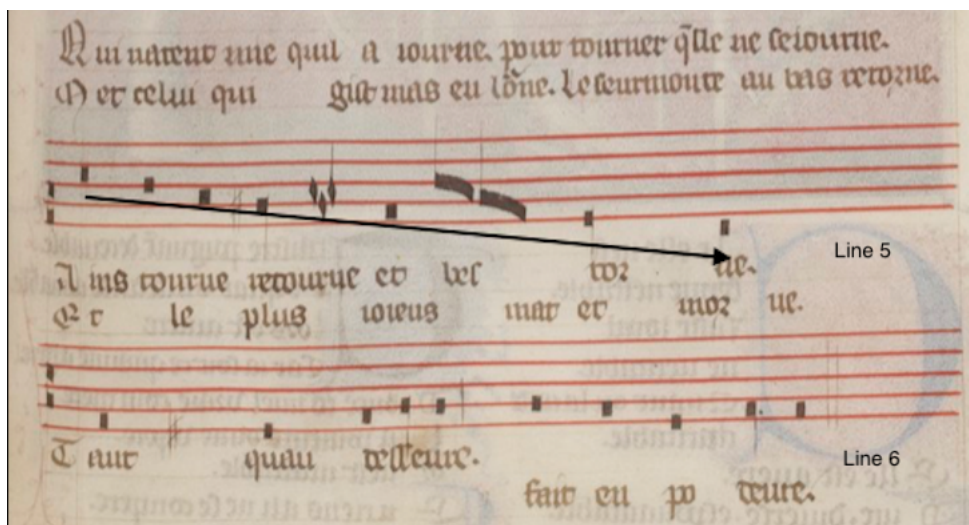 Qui natent mie quil a iourne. pour tourner q̃lle ne seiourne.
Met celui qui gist mas en lõne. Le seurmonte au bas retorne.
Line 5
Ains tourne retourne et bes tor ne.
Et le plus ioieus mat et mor ne.
Tant quau desseure.
Line 6
fait en po deure.